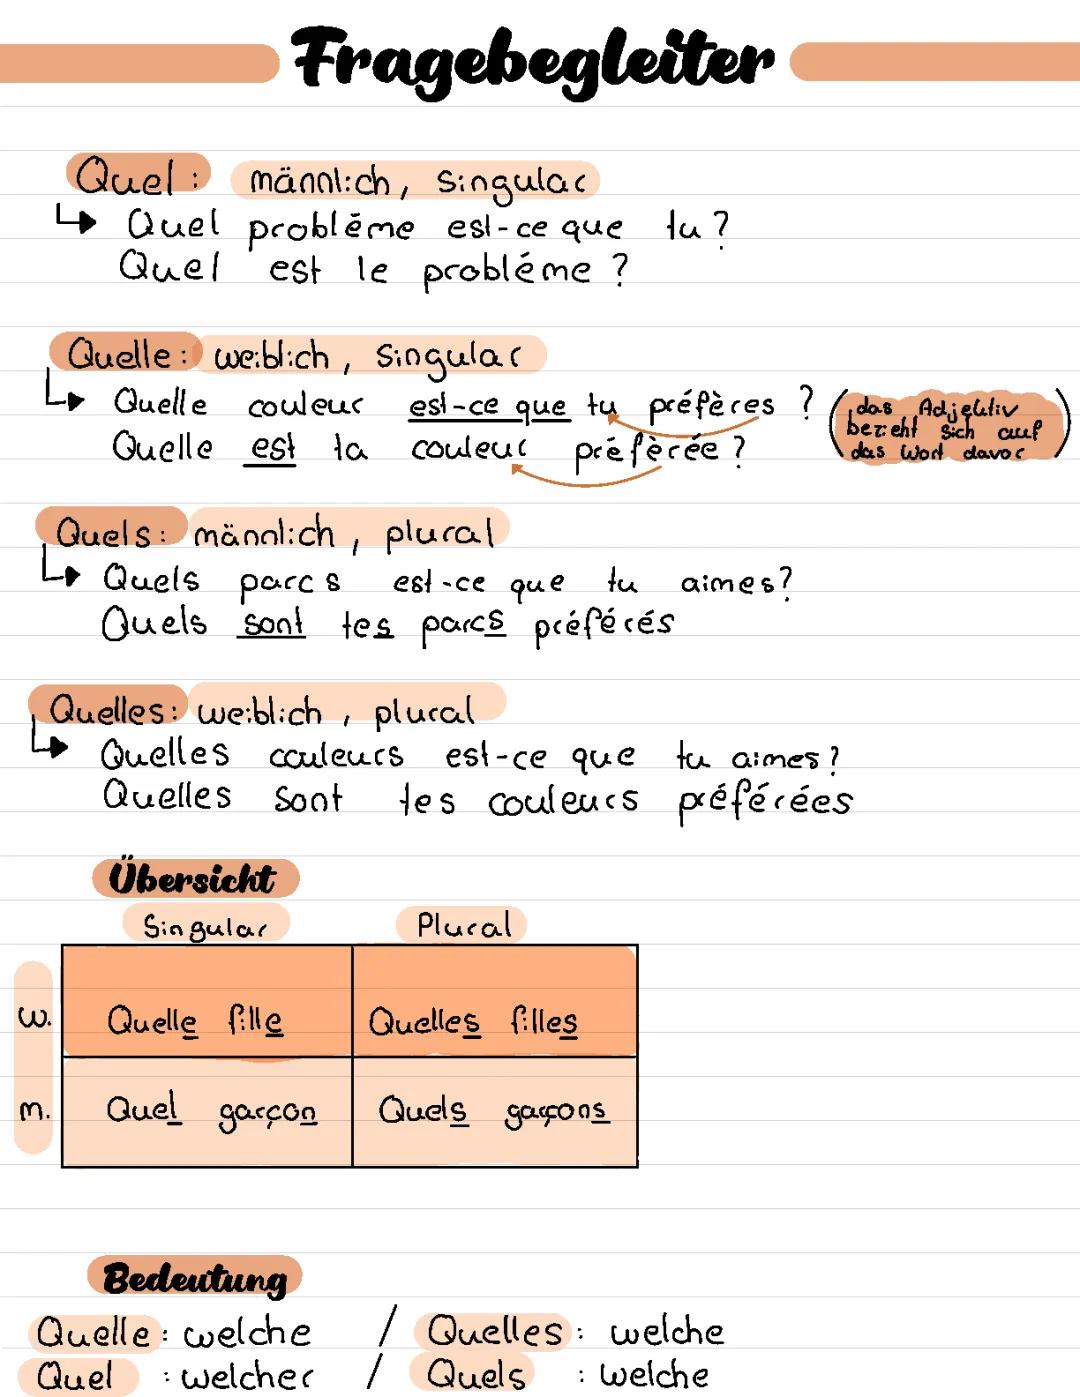 Fragebegleiter
Quel : männlich, Singular
↳ Quel probléme est-ce que tu ?
Quel est le probléme ?
Quelle : weiblich, Singular
↳ Quelle couleur est-ce que tu préfères ? (das Adjektiv
bezieht sich auf
das Wort davor)
Quelle est ta couleur préfèrée ?
Quels : männlich, plural
↳ Quels parcs est-ce que tu aimes?
Quels sont tes parcs préférés
Quelles : weiblich, plural
↳ Quelles couleurs est-ce que tu aimes?
Quelles sont tes couleurs préférées
Übersicht
Singular Plural
w. Quelle fille Quelles filles
m. Quel garçon Quels garçons
Bedeutung
Quelle : welche / Quelles : welche
Quel : welcher / Quels : welche